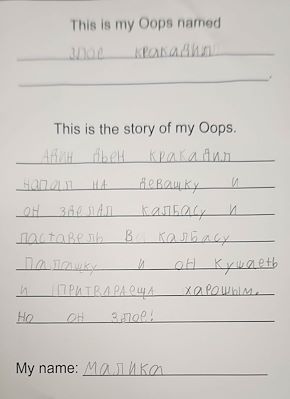 This is my Oops named
злое кракадил
This is the story of my Oops.
Адин дьен кракадил
напал на девашку и
он зделал калбасу и
паставель в калбасу
палашку и он кушаеть
и притвараеца харошым.
Но он злое!
My name: Малика